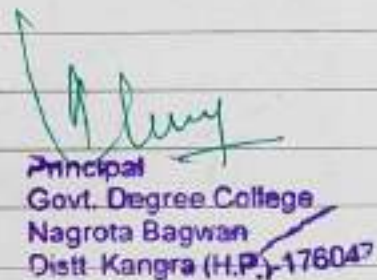 Principal
Govt. Degree College
Nagrota Bagwan
Distt Kangra (H.P.)-176047